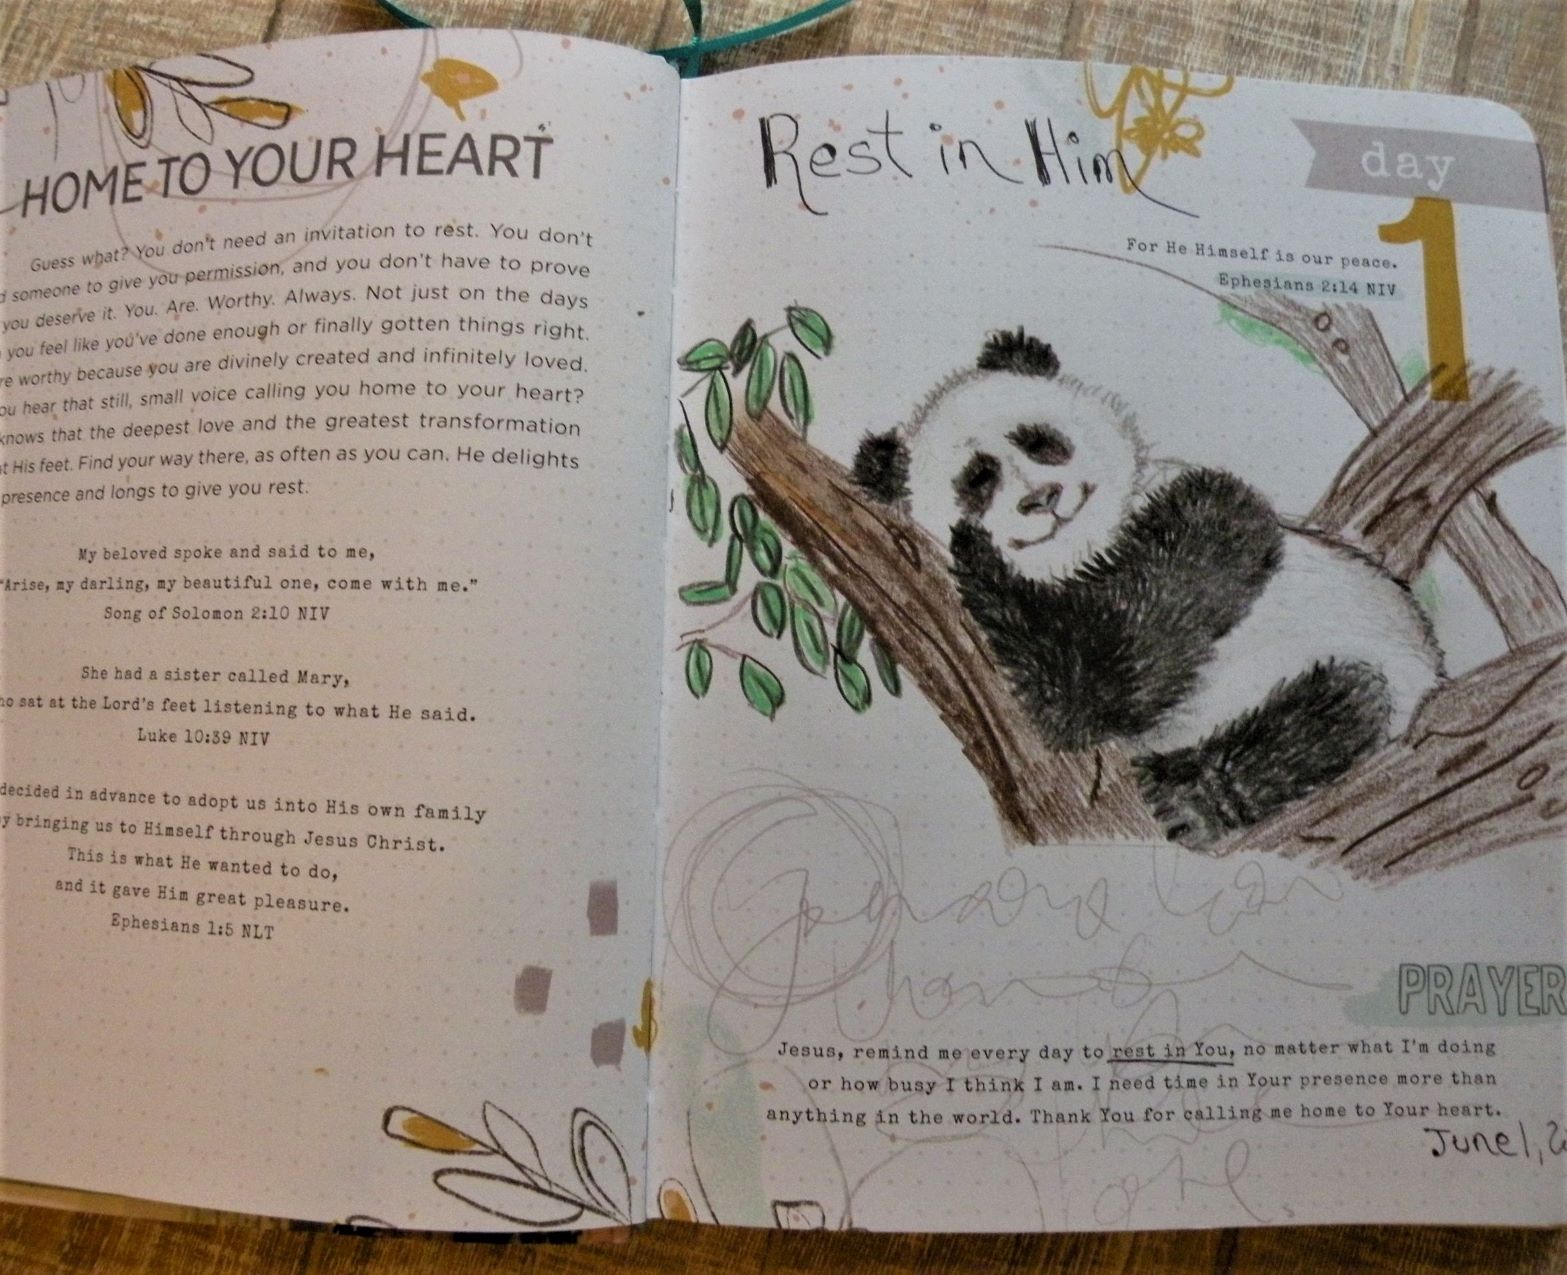 HOME TO YOUR HEART
Guess what? You don't need an invitation to rest. You don't
d someone to give you permission, and you don't have to prove
you deserve it. You. Are. Worthy. Always. Not just on the days
you feel like you've done enough or finally gotten things right.
re worthy because you are divinely created and infinitely loved.
ou hear that still, small voice calling you home to your heart?
knows that the deepest love and the greatest transformation
t His feet. Find your way there, as often as you can. He delights
presence and longs to give you rest.
My beloved spoke and said to me,
"Arise, my darling, my beautiful one, come with me."
Song of Solomon 2:10 NIV
She had a sister called Mary,
ho sat at the Lord's feet listening to what He said.
Luke 10:39 NIV
decided in advance to adopt us into His own family
y bringing us to Himself through Jesus Christ.
This is what He wanted to do,
and it gave Him great pleasure.
Ephesians 1:5 NLT
Rest in Him
day
1
For He Himself is our peace.
Ephesians 2:14 NIV
PRAYER
Jesus, remind me every day to rest in You, no matter what I'm doing
or how busy I think I am. I need time in Your presence more than
anything in the world. Thank You for calling me home to Your heart.
June 1, 2